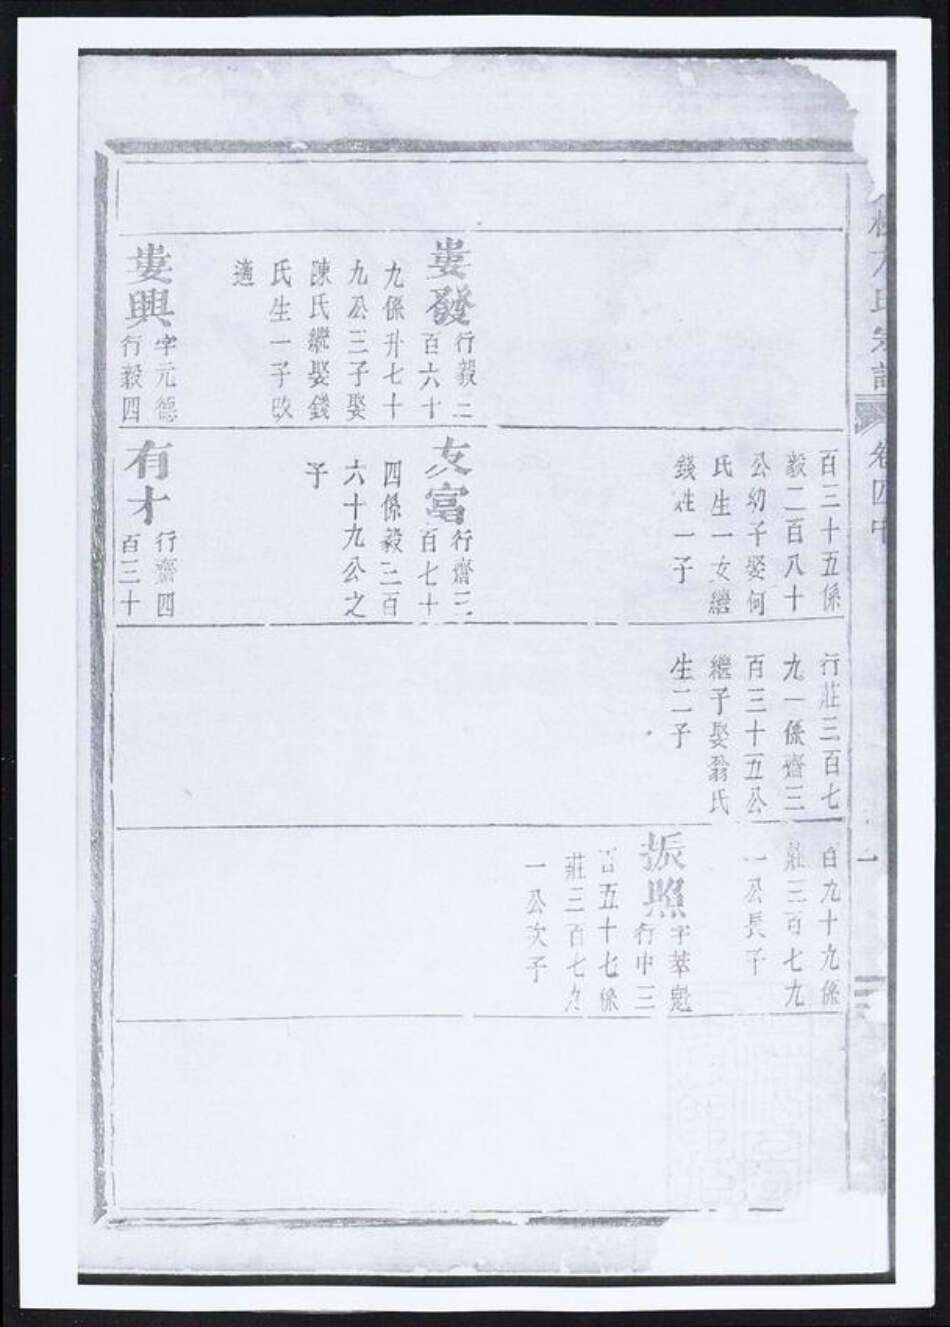 氏宗譜
卷四中
一
婁發
行毅三
百六十
九係升七十
九公三子娶
陳氏繼娶錢
氏生一子改
適
婁興
字元德
行毅四
百三十五係
毅二百八十
公幼子娶何
氏生一女繼
錢姓一子
友富
行齋三
百七十
四係毅三百
六十九公之
子
有才
行齋四
百三十
行莊三百七
九一係齋三
百三十五公
繼子娶翁氏
生二子
百九十九係
莊三百七九
一公長子
振照
字萃
行中三
百五十七係
莊三百七九
一公次子